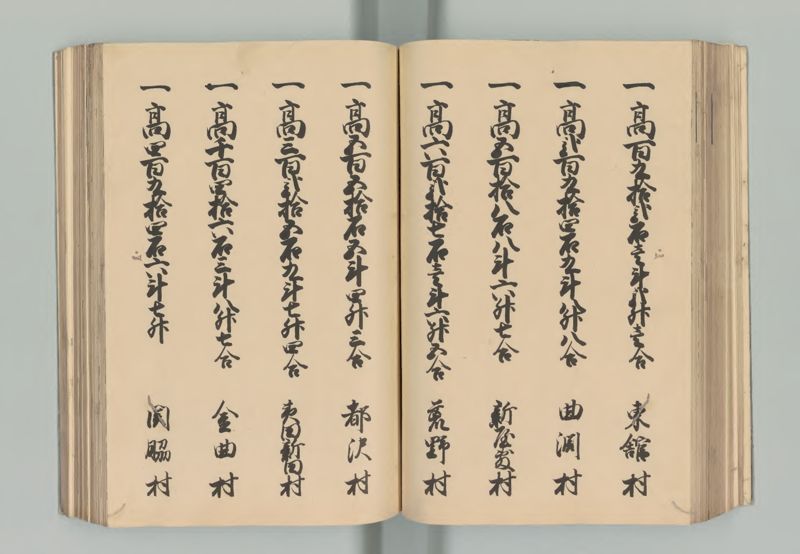 一高百九拾弐石壱斗弐升壱合 東舘村
一高弐百九拾四石九斗八升八合 曲渕村
一高五百拾八石八斗六升七合 新屋敷村
一高六百弐拾七石壱斗六升五合 荒野村
一高五百五拾石五斗四升三合 都沢村
一高三百弐拾五石九斗七升四合 夷田新田村
一高千百四拾六石三斗八升七合 金曲村
一高四百九拾四石六斗七升 関脇村